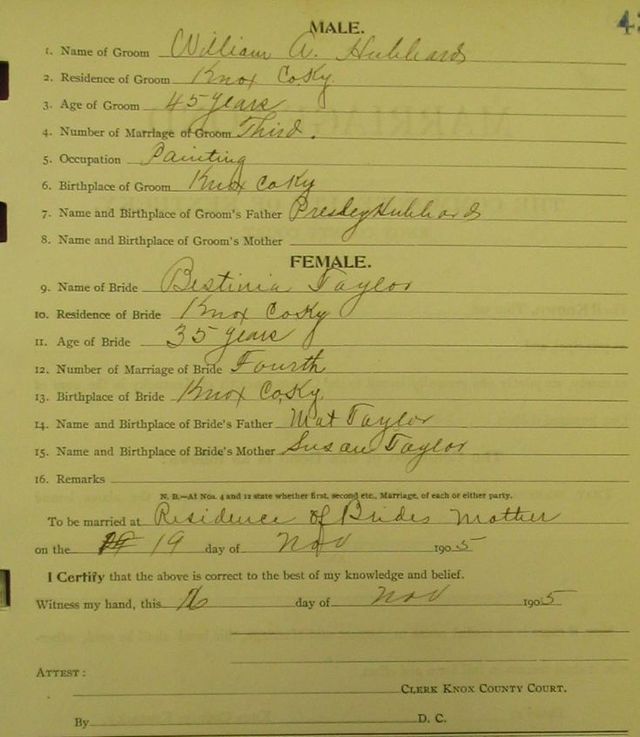 MALE.
1. Name of Groom William A. Hubbard
2. Residence of Groom Knox Co.Ky
3. Age of Groom 45 years
4. Number of Marriage of Groom Third.
5. Occupation Painting
6. Birthplace of Groom Knox Co Ky
7. Name and Birthplace of Groom's Father Presley Hubbard
8. Name and Birthplace of Groom's Mother
FEMALE.
9. Name of Bride Bestinia Taylor
10. Residence of Bride Knox Co Ky
11. Age of Bride 35 years
12. Number of Marriage of Bride Fourth
13. Birthplace of Bride Knox Co, Ky
14. Name and Birthplace of Bride's Father Mat Taylor
15. Name and Birthplace of Bride's Mother Susan Taylor
16. Remarks
N. B.—At Nos. 4 and 12 state whether first, second etc., Marriage, of each or either party.
To be married at Residence of Brides Mother
on the 19 day of Nov 1905
I Certify that the above is correct to the best of my knowledge and belief.
Witness my hand, this 16 day of Nov 1905
ATTEST:
CLERK KNOX COUNTY COURT.
By D. C.